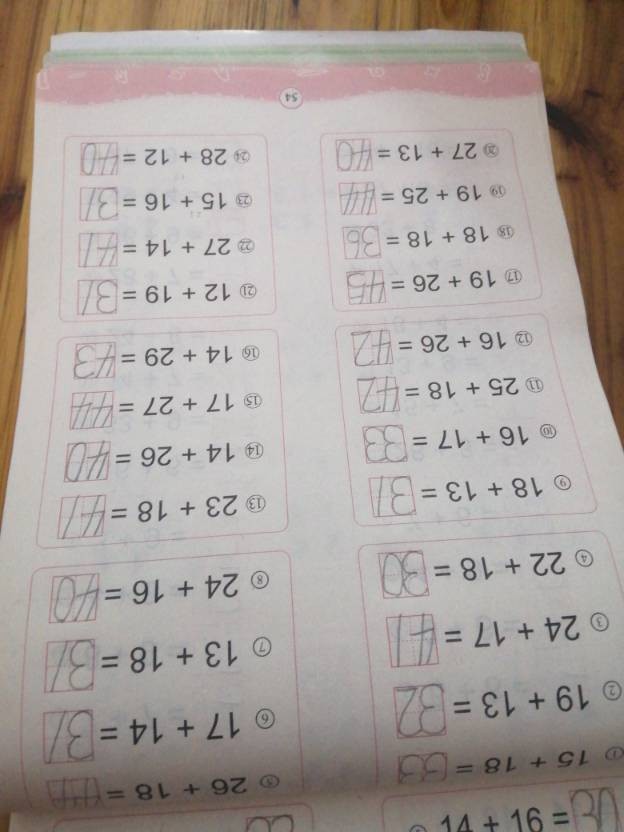 ① 15 + 18 = 33
② 19 + 13 = 32
③ 24 + 17 = 41
④ 22 + 18 = 30
⑤ 26 + 18 = 44
⑥ 17 + 14 = 31
⑦ 13 + 18 = 31
⑧ 24 + 16 = 40
⑨ 18 + 13 = 31
⑩ 16 + 17 = 33
⑪ 25 + 18 = 42
⑫ 16 + 26 = 42
⑬ 23 + 18 = 41
⑭ 14 + 26 = 40
⑮ 17 + 27 = 44
⑯ 14 + 29 = 43
⑰ 19 + 26 = 45
⑱ 18 + 18 = 36
⑲ 19 + 25 = 44
⑳ 27 + 13 = 40
㉑ 12 + 19 = 31
㉒ 27 + 14 = 41
㉓ 15 + 16 = 31
㉔ 28 + 12 = 40
54